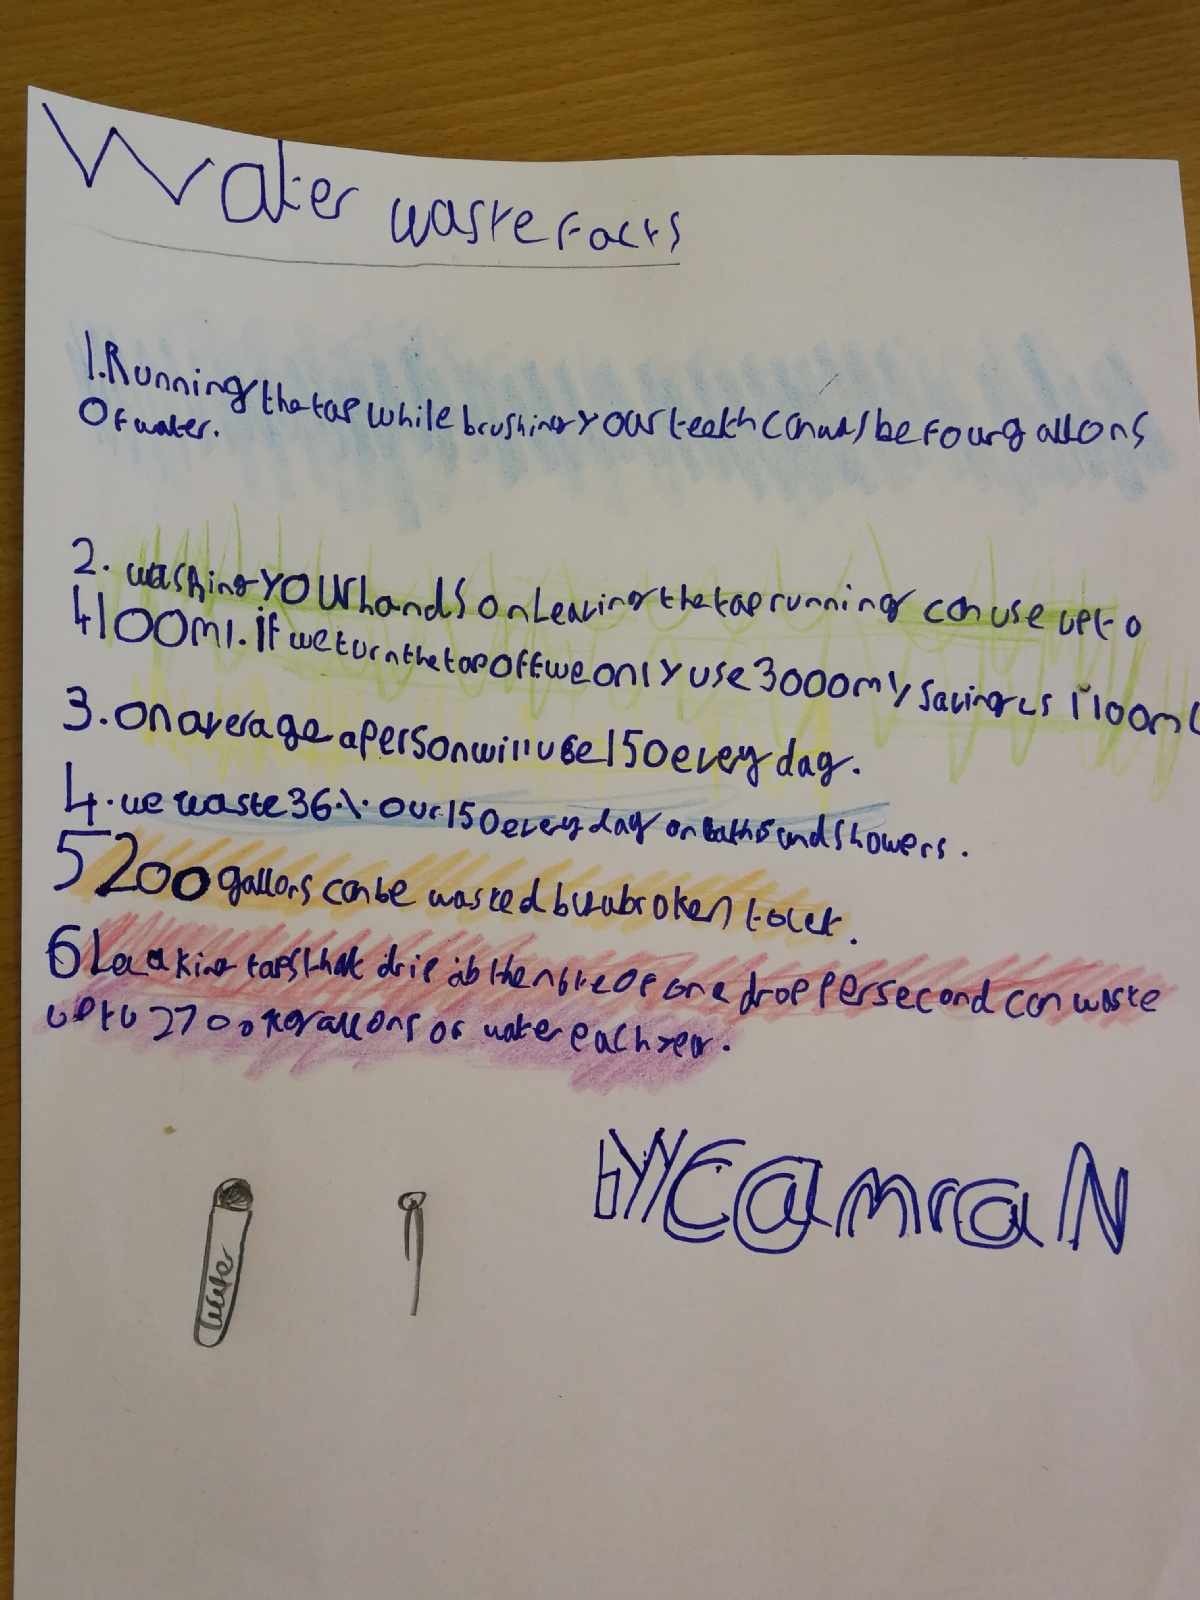 Water waste facts
1. Running the tap while brushing your teeth can waste four gallons
of water.
2. washing your hands on leaving the tap running can use up to
4100ml. if we turn the tap off we only use 3000ml saving us 1100ml
3. on average a person will use 150 every day.
4. we waste 36% our 150 every day on baths and showers.
5 200 gallons can be wasted by a broken
6 Leaking taps that drip at the rate of one drop per second can waste
up to 2700 gallons of water each year.
by Camran
water